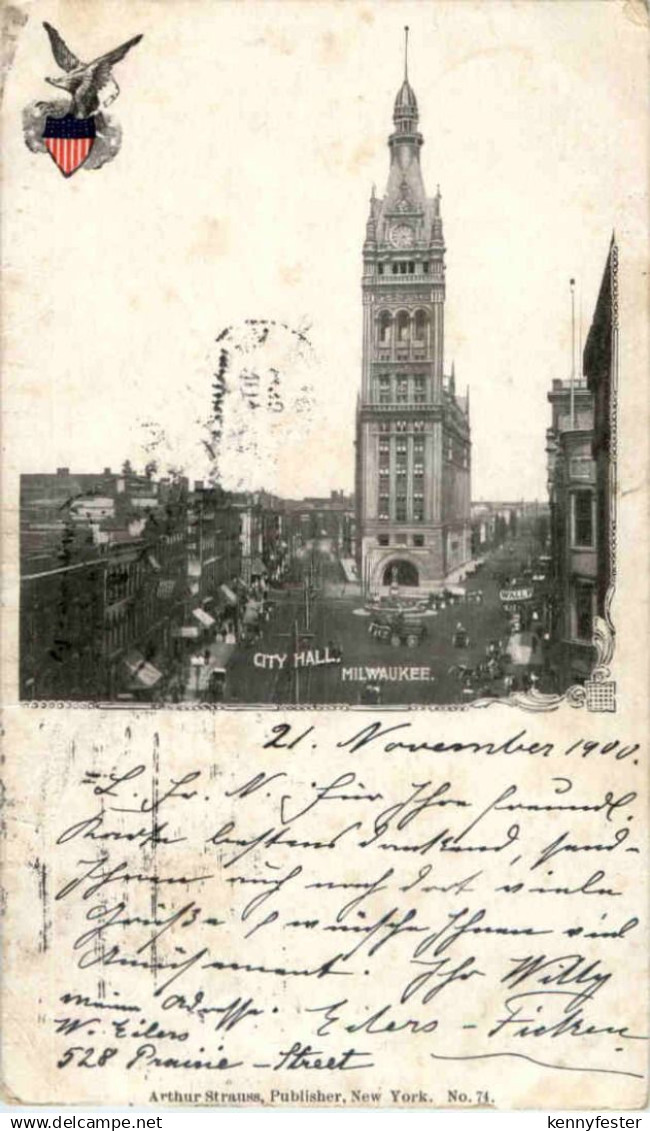 WALL P
CITY HALL.
MILWAUKEE.
21. November 1900.
"L. Fr. N. Für Ihre freundl.
Karte bestens dankend, send-
Ihnen auch nach dort viele
Grüße & wünsche Ihnen viel
Amüsement. Ihr Willy
meine Adresse: Eilers-Ficken
W. Eilers
528 Prairie-Street
Arthur Strauss, Publisher, New York. No. 74.
kennyfester